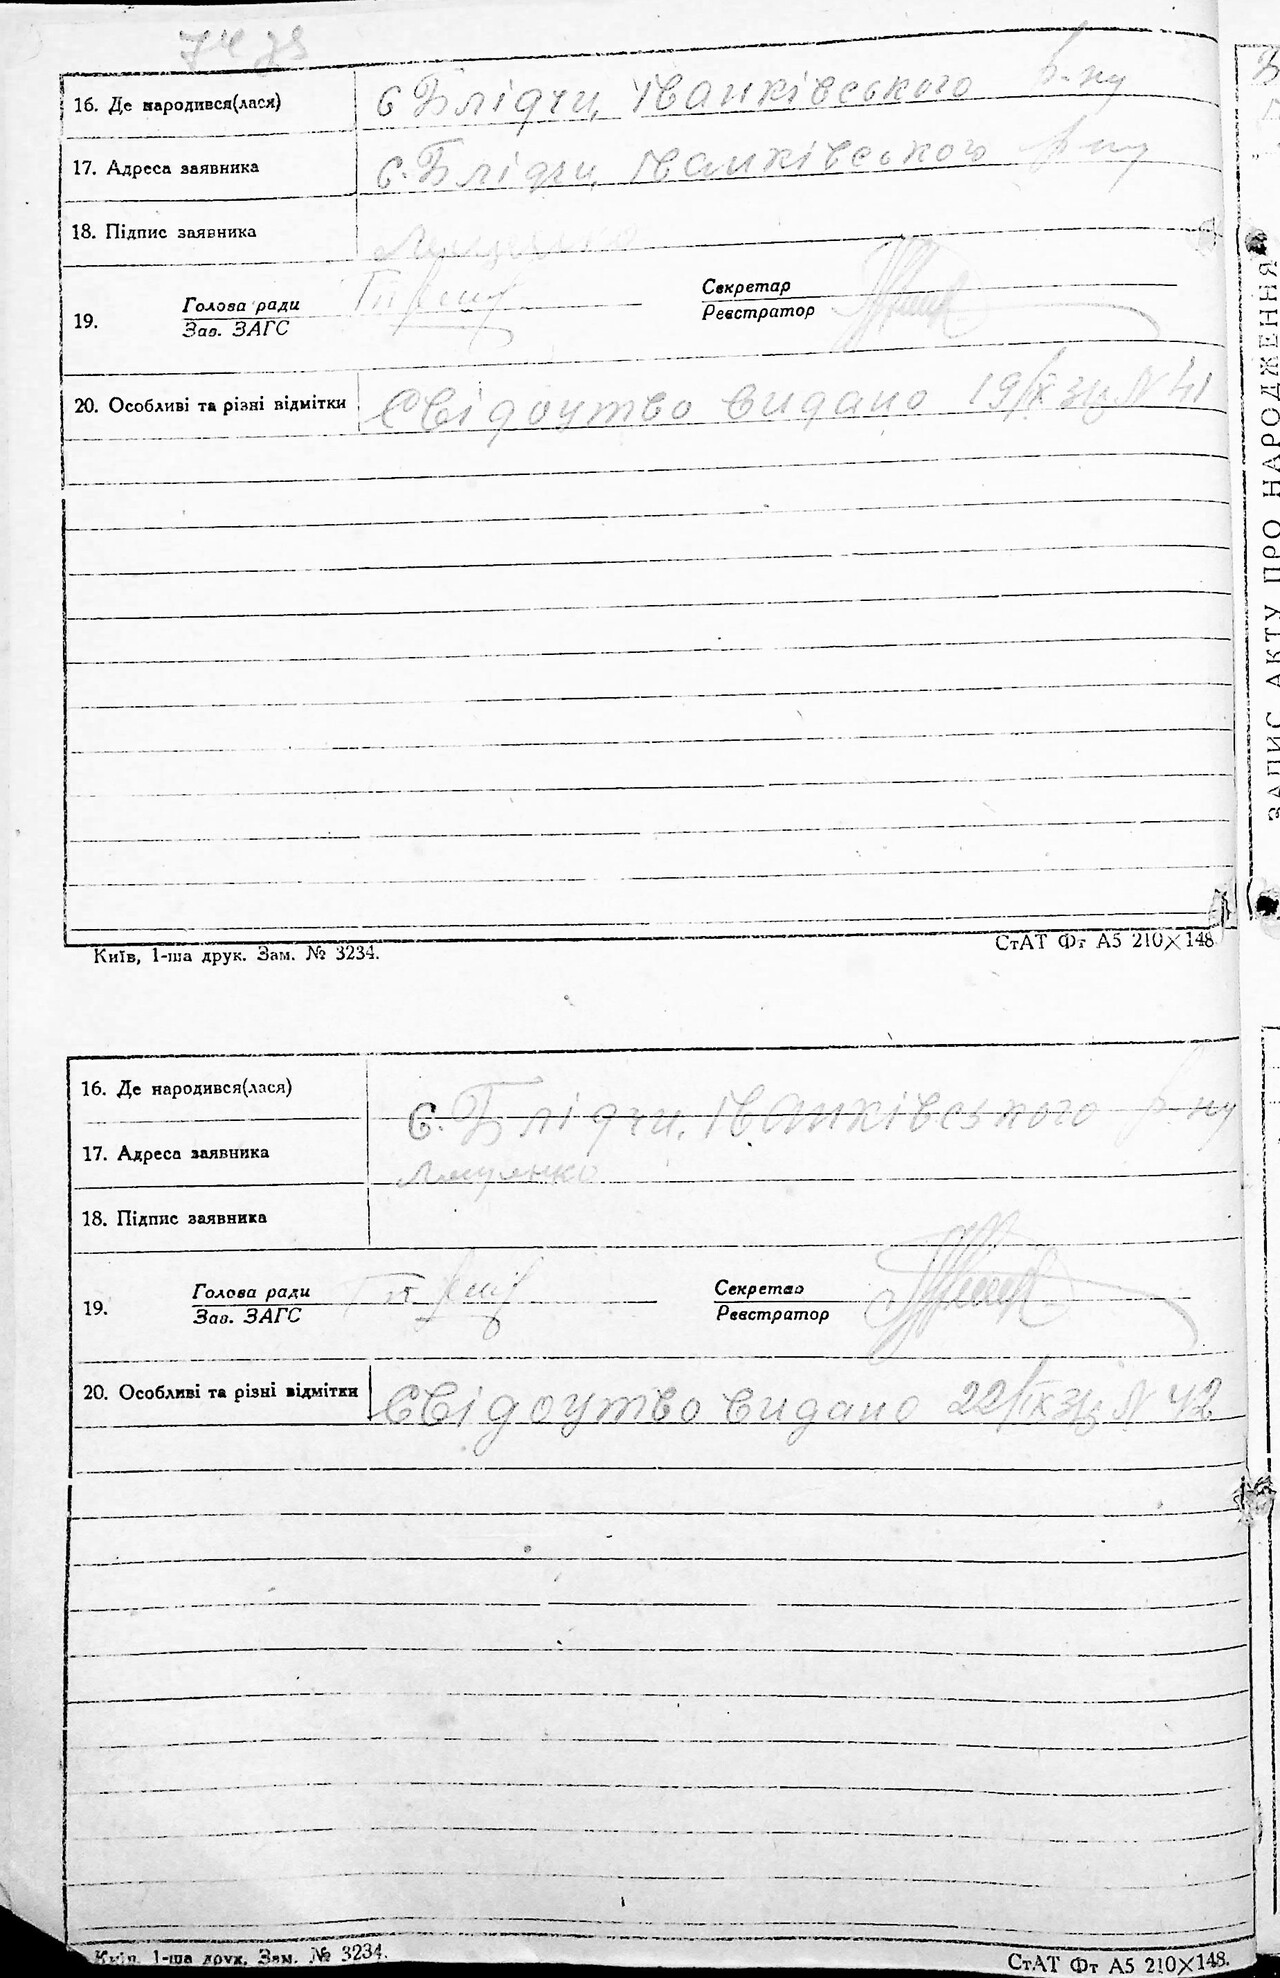 16. Де народився(лася) с. Блідчи, Іванківського р-ну
17. Адреса заявника с. Блідчи, Іванківського р-ну
18. Підпис заявника
19. Голова ради Секретар
Зав. ЗАГС Реєстратор
20. Особливі та різні відмітки Свідоцтво видано 19/IX 3 N 41
Київ, 1-ша друк. Зам. № 3234. СтАТ Фт А5 210×148
16. Де народився(лася)
с. Блідчи, Іванківського р-ну
17. Адреса заявника
18. Підпис заявника
19. Голова ради Секретар
Зав. ЗАГС Реєстратор
20. Особливі та різні відмітки Свідоцтво видано 22/IX 3 N 42
Київ, 1-ша друк. Зам. № 3234. СтАТ Фт А5 210×148.
ЗАПИС АКТУ ПРО НАРОДЖЕННЯ